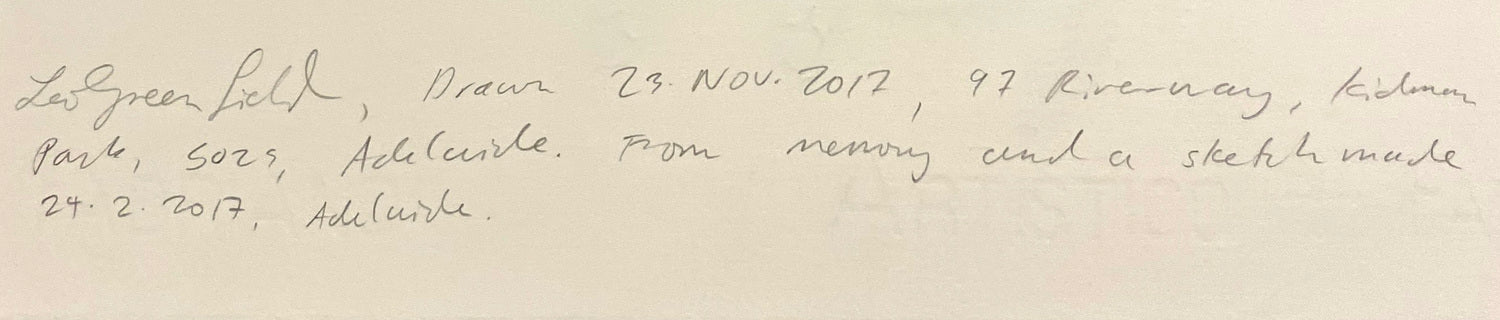 Leo Greenfield, Drawn 23. NOV. 2017, 97 Riverway, Kidman
Park, 5025, Adelaide. From memory and a sketch made
24.2.2017, Adelaide.